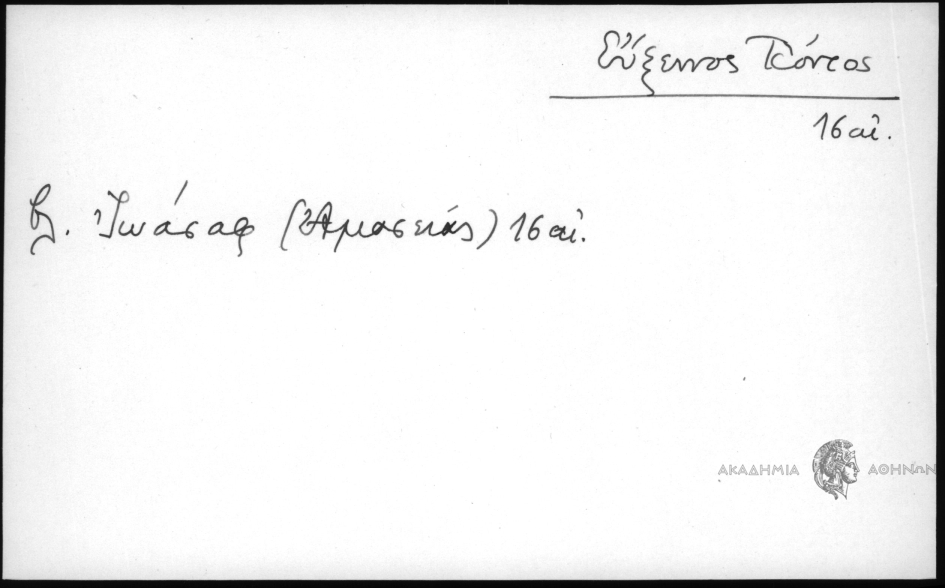 Εὔξεινος Πόντος
16 αἰ.
βλ. Ἰωάσαφ (Ἀμασείας) 16 αἰ.
ΑΚΑΔΗΜΙΑ ΑΘΗΝΩΝ